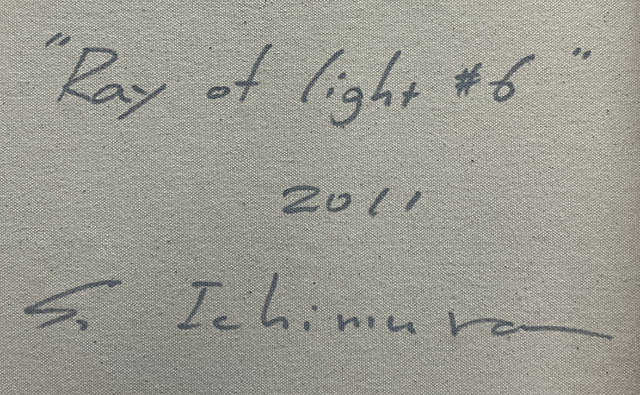 "Ray of light #6"
2011
S. Ichimura